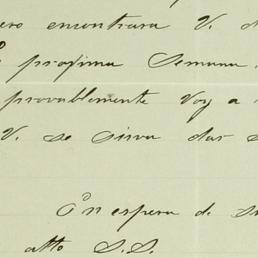 ero encontrara V.
proxima Semana
provablemente Voy a
V. se sirva das
En espera de su
atto S.S.